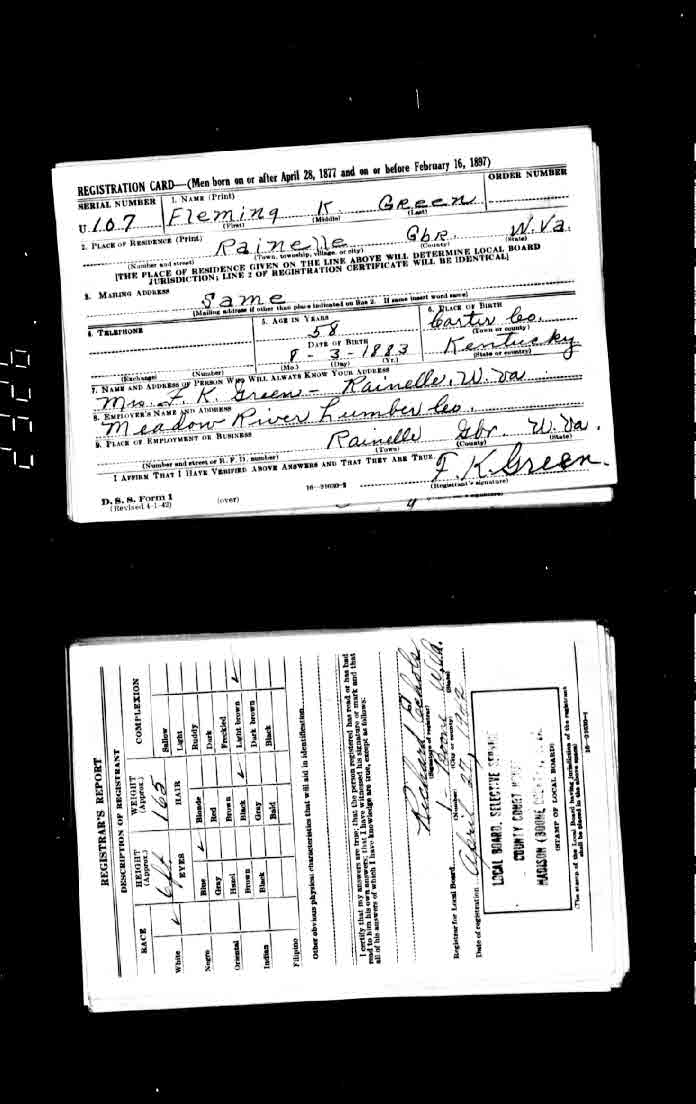 REGISTRATION CARD—(Men born on or after April 28, 1877 and on or before February 16, 1897)
SERIAL NUMBER 1. NAME (Print) ORDER NUMBER
U 107 Fleming K Green
(First) (Middle) (Last)
2. PLACE OF RESIDENCE (Print)
Rainelle Gbr. W. Va.
(Number and street) (Town, township, village, or city) (County) (State)
[THE PLACE OF RESIDENCE GIVEN ON THE LINE ABOVE WILL DETERMINE LOCAL BOARD
JURISDICTION; LINE 2 OF REGISTRATION CERTIFICATE WILL BE IDENTICAL]
3. MAILING ADDRESS
Same
[Mailing address if other than place indicated on line 2. If same insert word same]
4. TELEPHONE 5. AGE IN YEARS 6. PLACE OF BIRTH
58 Carter Co.
DATE OF BIRTH (Town or county)
8 - 3 - 1883 Kentucky
(Exchange) (Number) (Mo.) (Day) (Yr.) (State or country)
7. NAME AND ADDRESS OF PERSON WHO WILL ALWAYS KNOW YOUR ADDRESS
Mrs. F. K. Green - Rainelle, W. Va
8. EMPLOYER'S NAME AND ADDRESS
Meadow River Lumber Co.
9. PLACE OF EMPLOYMENT OR BUSINESS
Rainelle Gbr. W. Va.
(Number and street or R. F. D. number) (Town) (County) (State)
I AFFIRM THAT I HAVE VERIFIED ABOVE ANSWERS AND THAT THEY ARE TRUE.
F. K. Green.
D. S. S. Form 1 (Registrant's signature)
(Revised 4-1-42) (over) 16—21630-2
REGISTRAR'S REPORT
DESCRIPTION OF REGISTRANT
RACE HEIGHT (Approx.) WEIGHT (Approx.) COMPLEXION
6 ft 165 Sallow
White ✓ EYES HAIR Light
Negro Blue ✓ Blonde Ruddy
Gray Red Dark
Oriental Hazel Brown Freckled
Brown Black ✓ Light brown ✓
Indian Black Gray Dark brown
Bald Black
Filipino
Other obvious physical characteristics that will aid in identification
I certify that my answers are true; that the person registered has read or has had
read to him his own answers; that I have witnessed his signature or mark and that
all of his answers of which I have knowledge are true, except as follows:
Richard Echols
(Signature of registrar)
Registrar for Local Board 1 Boone W. Va.
(Number) (City or county) (State)
Date of registration April 27, 1942
LOCAL BOARD, SELECTIVE SERVICE
COUNTY COURT HOUSE
MADISON (BOONE
(STAMP OF LOCAL BOARD)
(The stamp of the Local Board having jurisdiction of the registrant
shall be placed in the above space)
16—21630-1